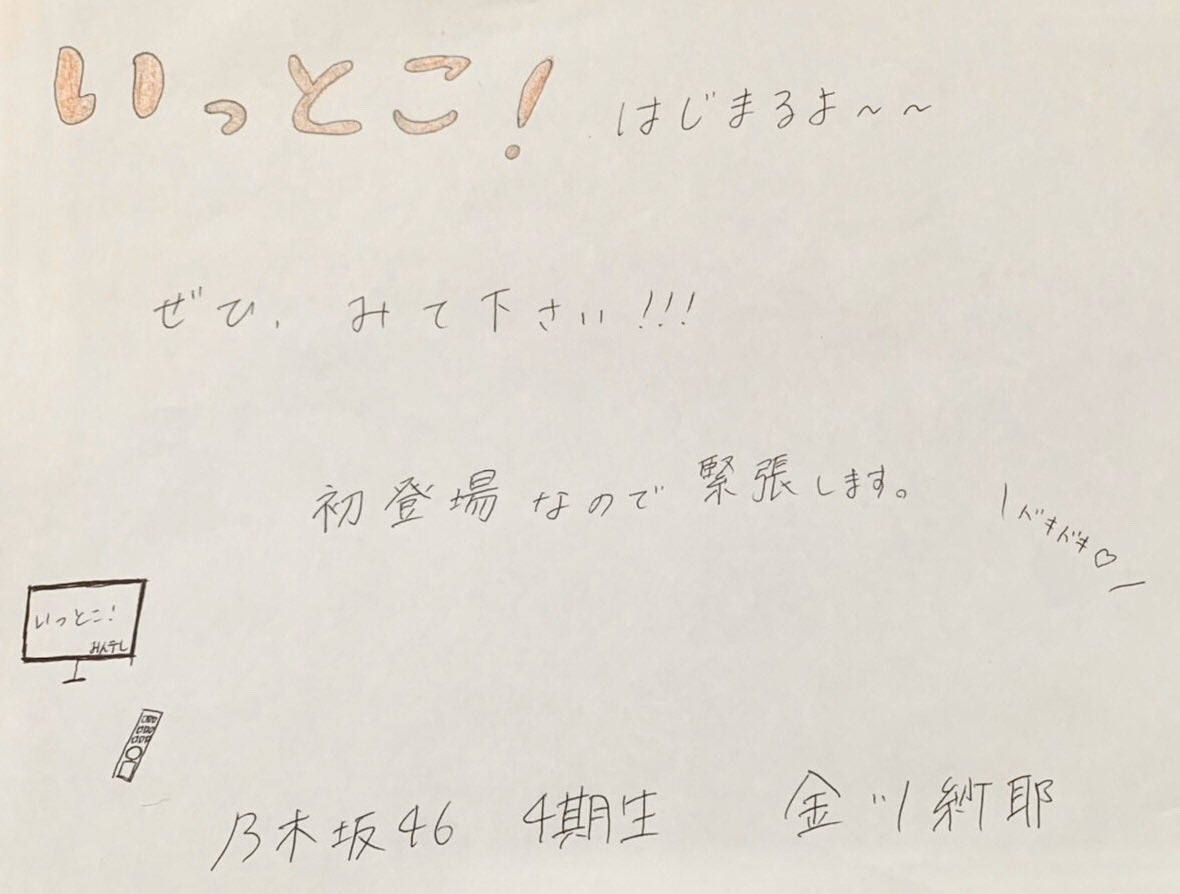 いっとこ! はじまるよ〜〜
ぜひ、みて下さい!!!
初登場なので緊張します。
ドキドキ♡
いっとこ!
みんテレ
乃木坂46 4期生 金川紗耶